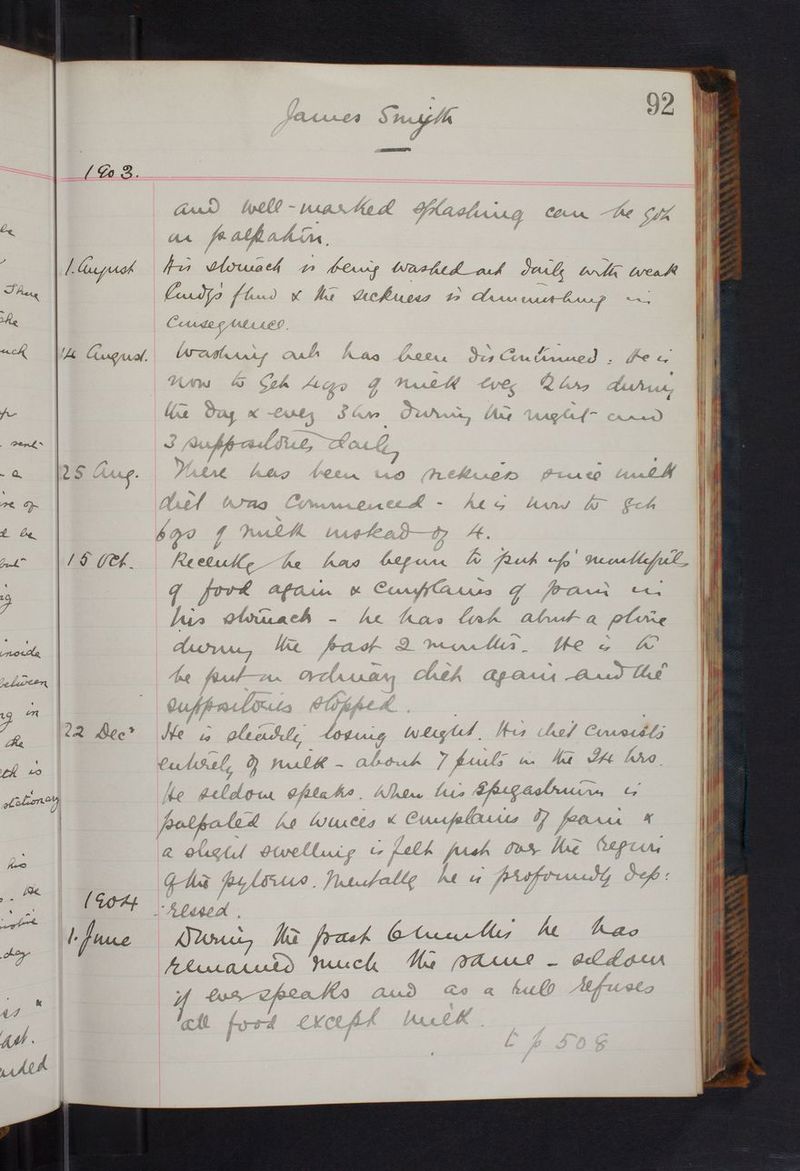 92
James Smyth
1903.
and well-marked splashing can be got
on palpation.
1. August His stomach is being washed out daily with weak
Condy's fluid & the sickness is diminishing in
consequence.
14 August. Washing out has been discontinued: He is
now to get 4 ozs of milk every 2 hrs during
the day & every 3 hrs during the night and
3 suppositories daily
25 Aug. There has been no sickness since milk
diet was commenced - he is now to get
6 ozs of milk instead of 4.
15 Oct. Recently he has begun to 'put up' mouthfuls
of food again & complains of pain in
his stomach - he has lost about a stone
during the past 2 months. He is to
be put on ordinary diet again and the
suppositories stopped.
22 Decr He is steadily losing weight. His diet consists
entirely of milk - about 7 pints in the 24 hrs.
He seldom speaks. When his Epigastrium is
palpated he winces & complains of pain &
a slight swelling is felt just over the region
of the pylorus. Mentally he is profoundly dep:
1904 :ressed.
1. June During the past 6 months he has
remained much the same - seldom
if ever speaks and as a rule refuses
all food except milk.
t p 508
There
sent
inside
between
in
is
stationary
his
He
day